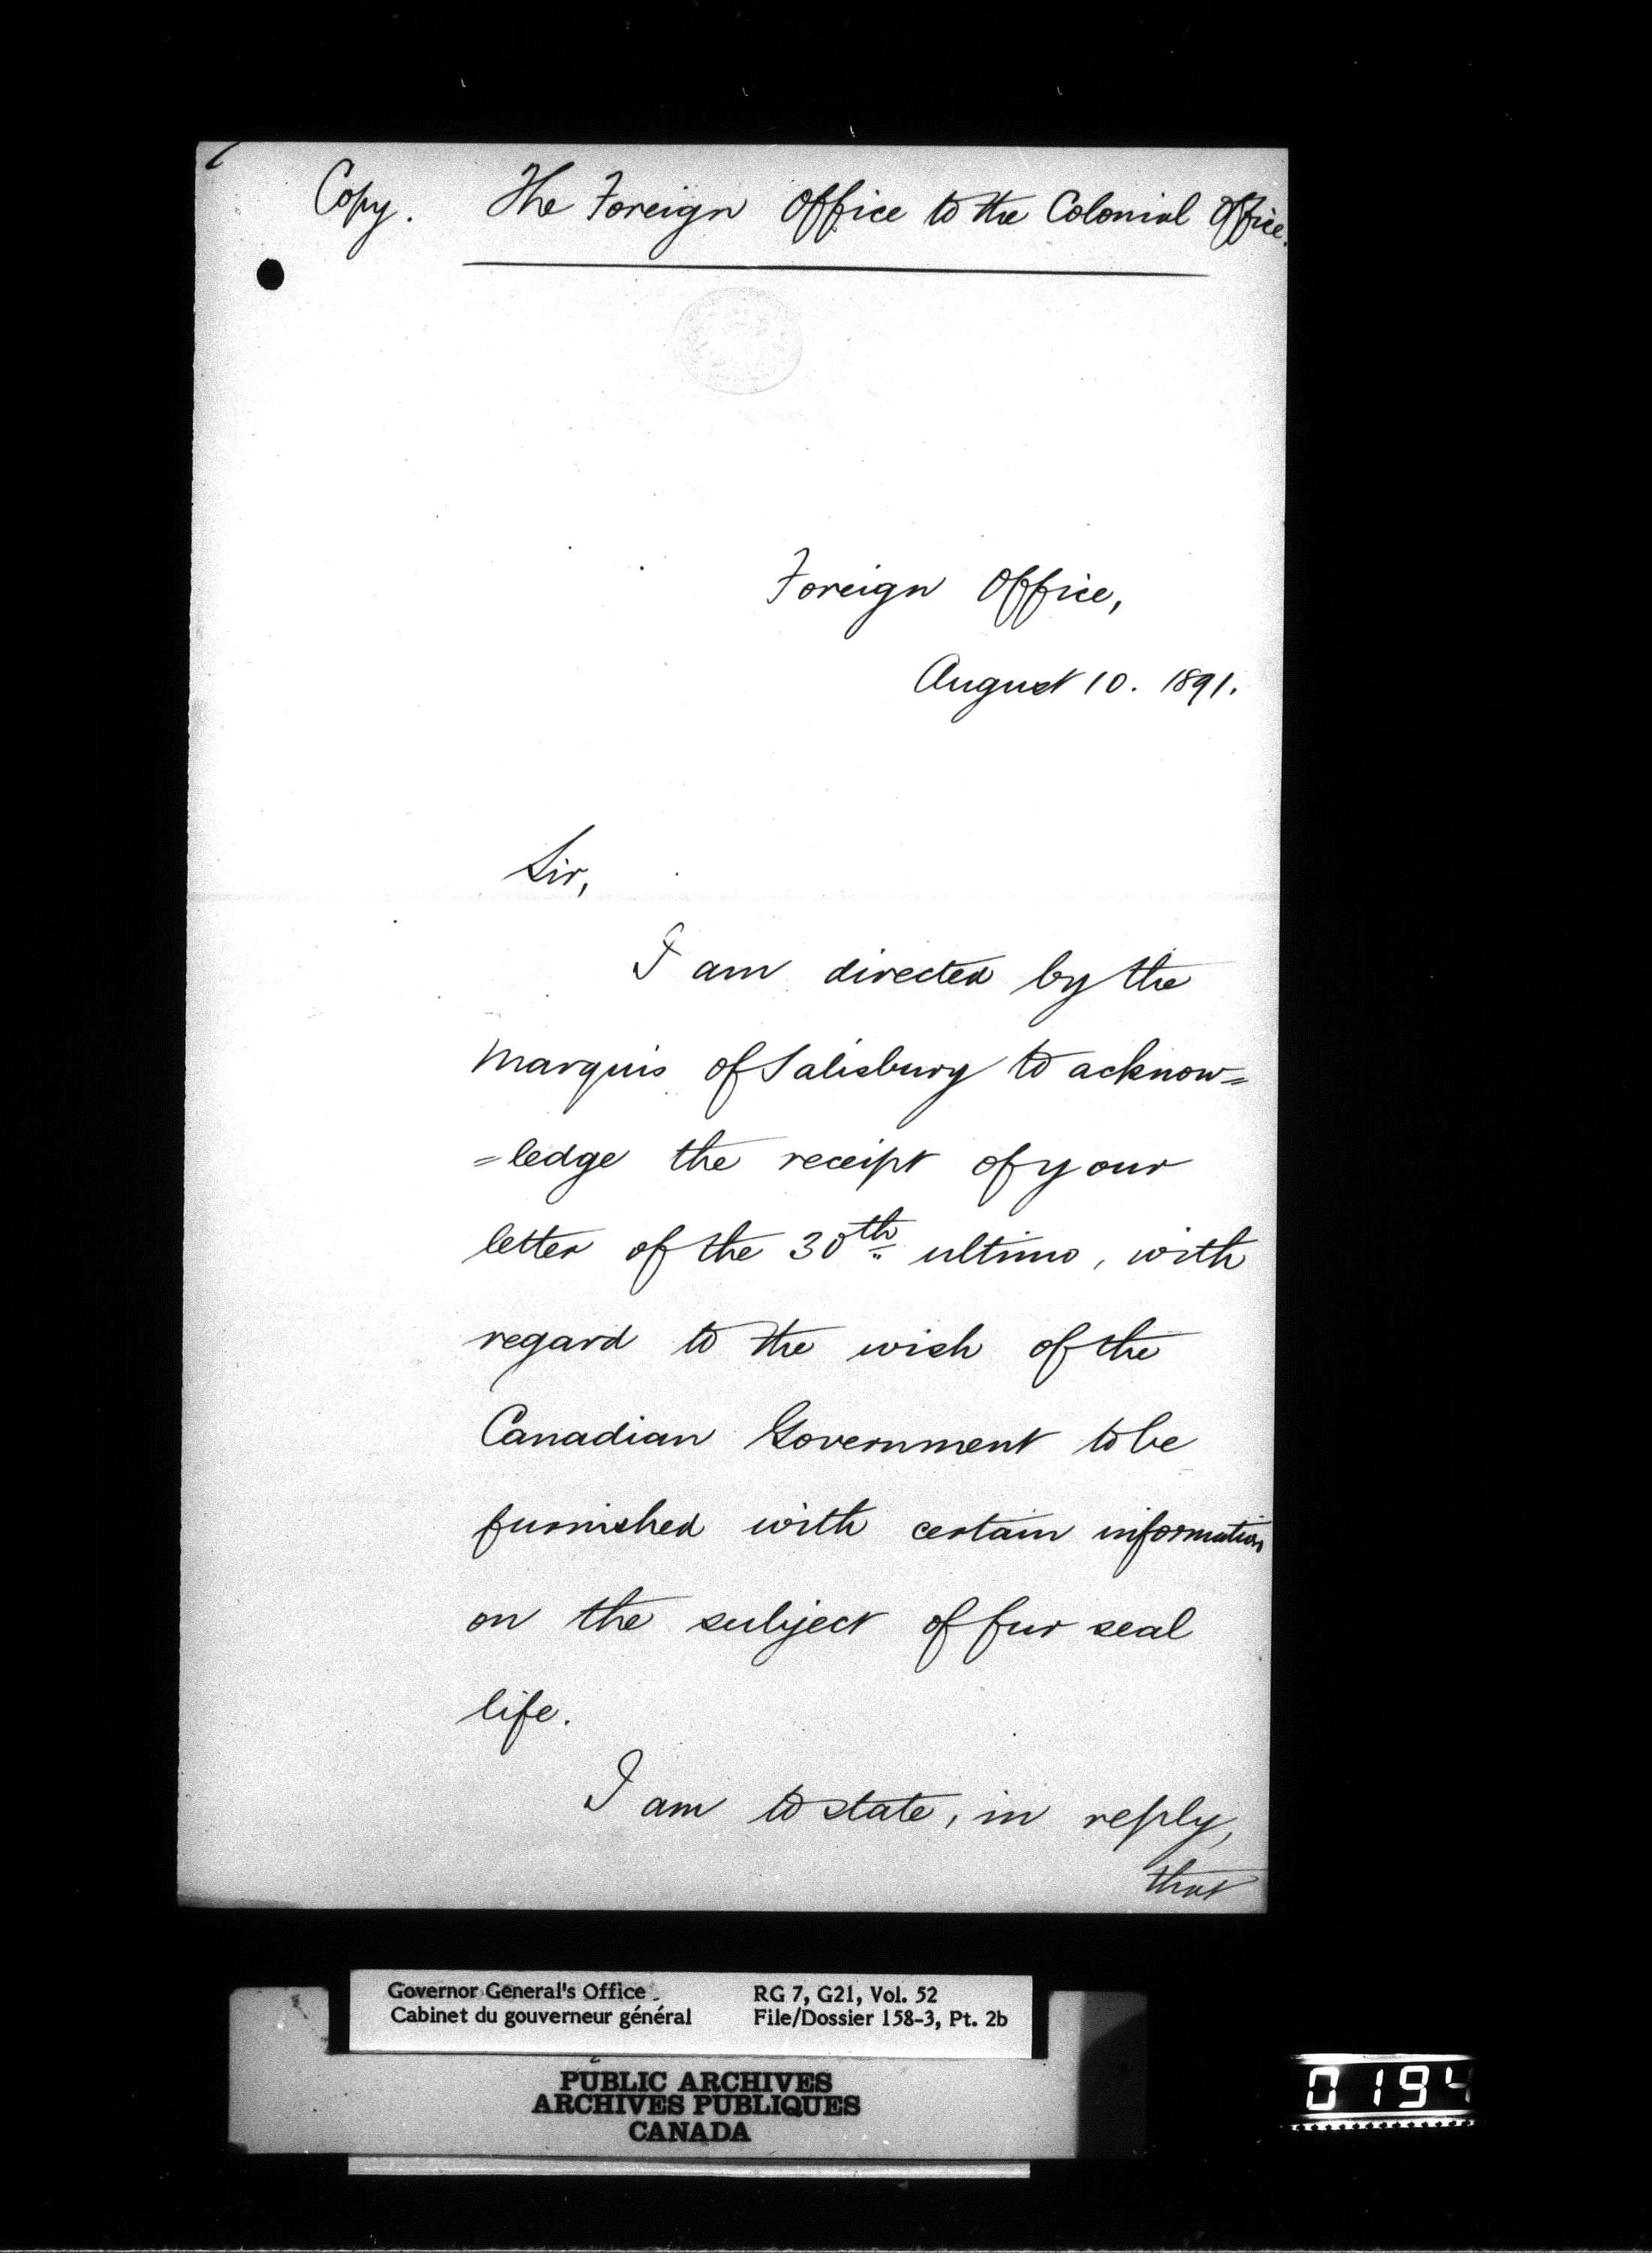 Copy. The Foreign Office to the Colonial Office.
Foreign Office,
August 10. 1891.
Sir,
I am directed by the
Marquis of Salisbury to acknow=
=ledge the receipt of your
letter of the 30th ultimo, with
regard to the wish of the
Canadian Government to be
furnished with certain information
on the subject of fur seal
life.
I am to state, in reply,
that
Governor General's Office RG 7, G21, Vol. 52
Cabinet du gouverneur général File/Dossier 158-3, Pt. 2b
PUBLIC ARCHIVES
ARCHIVES PUBLIQUES
CANADA
0194